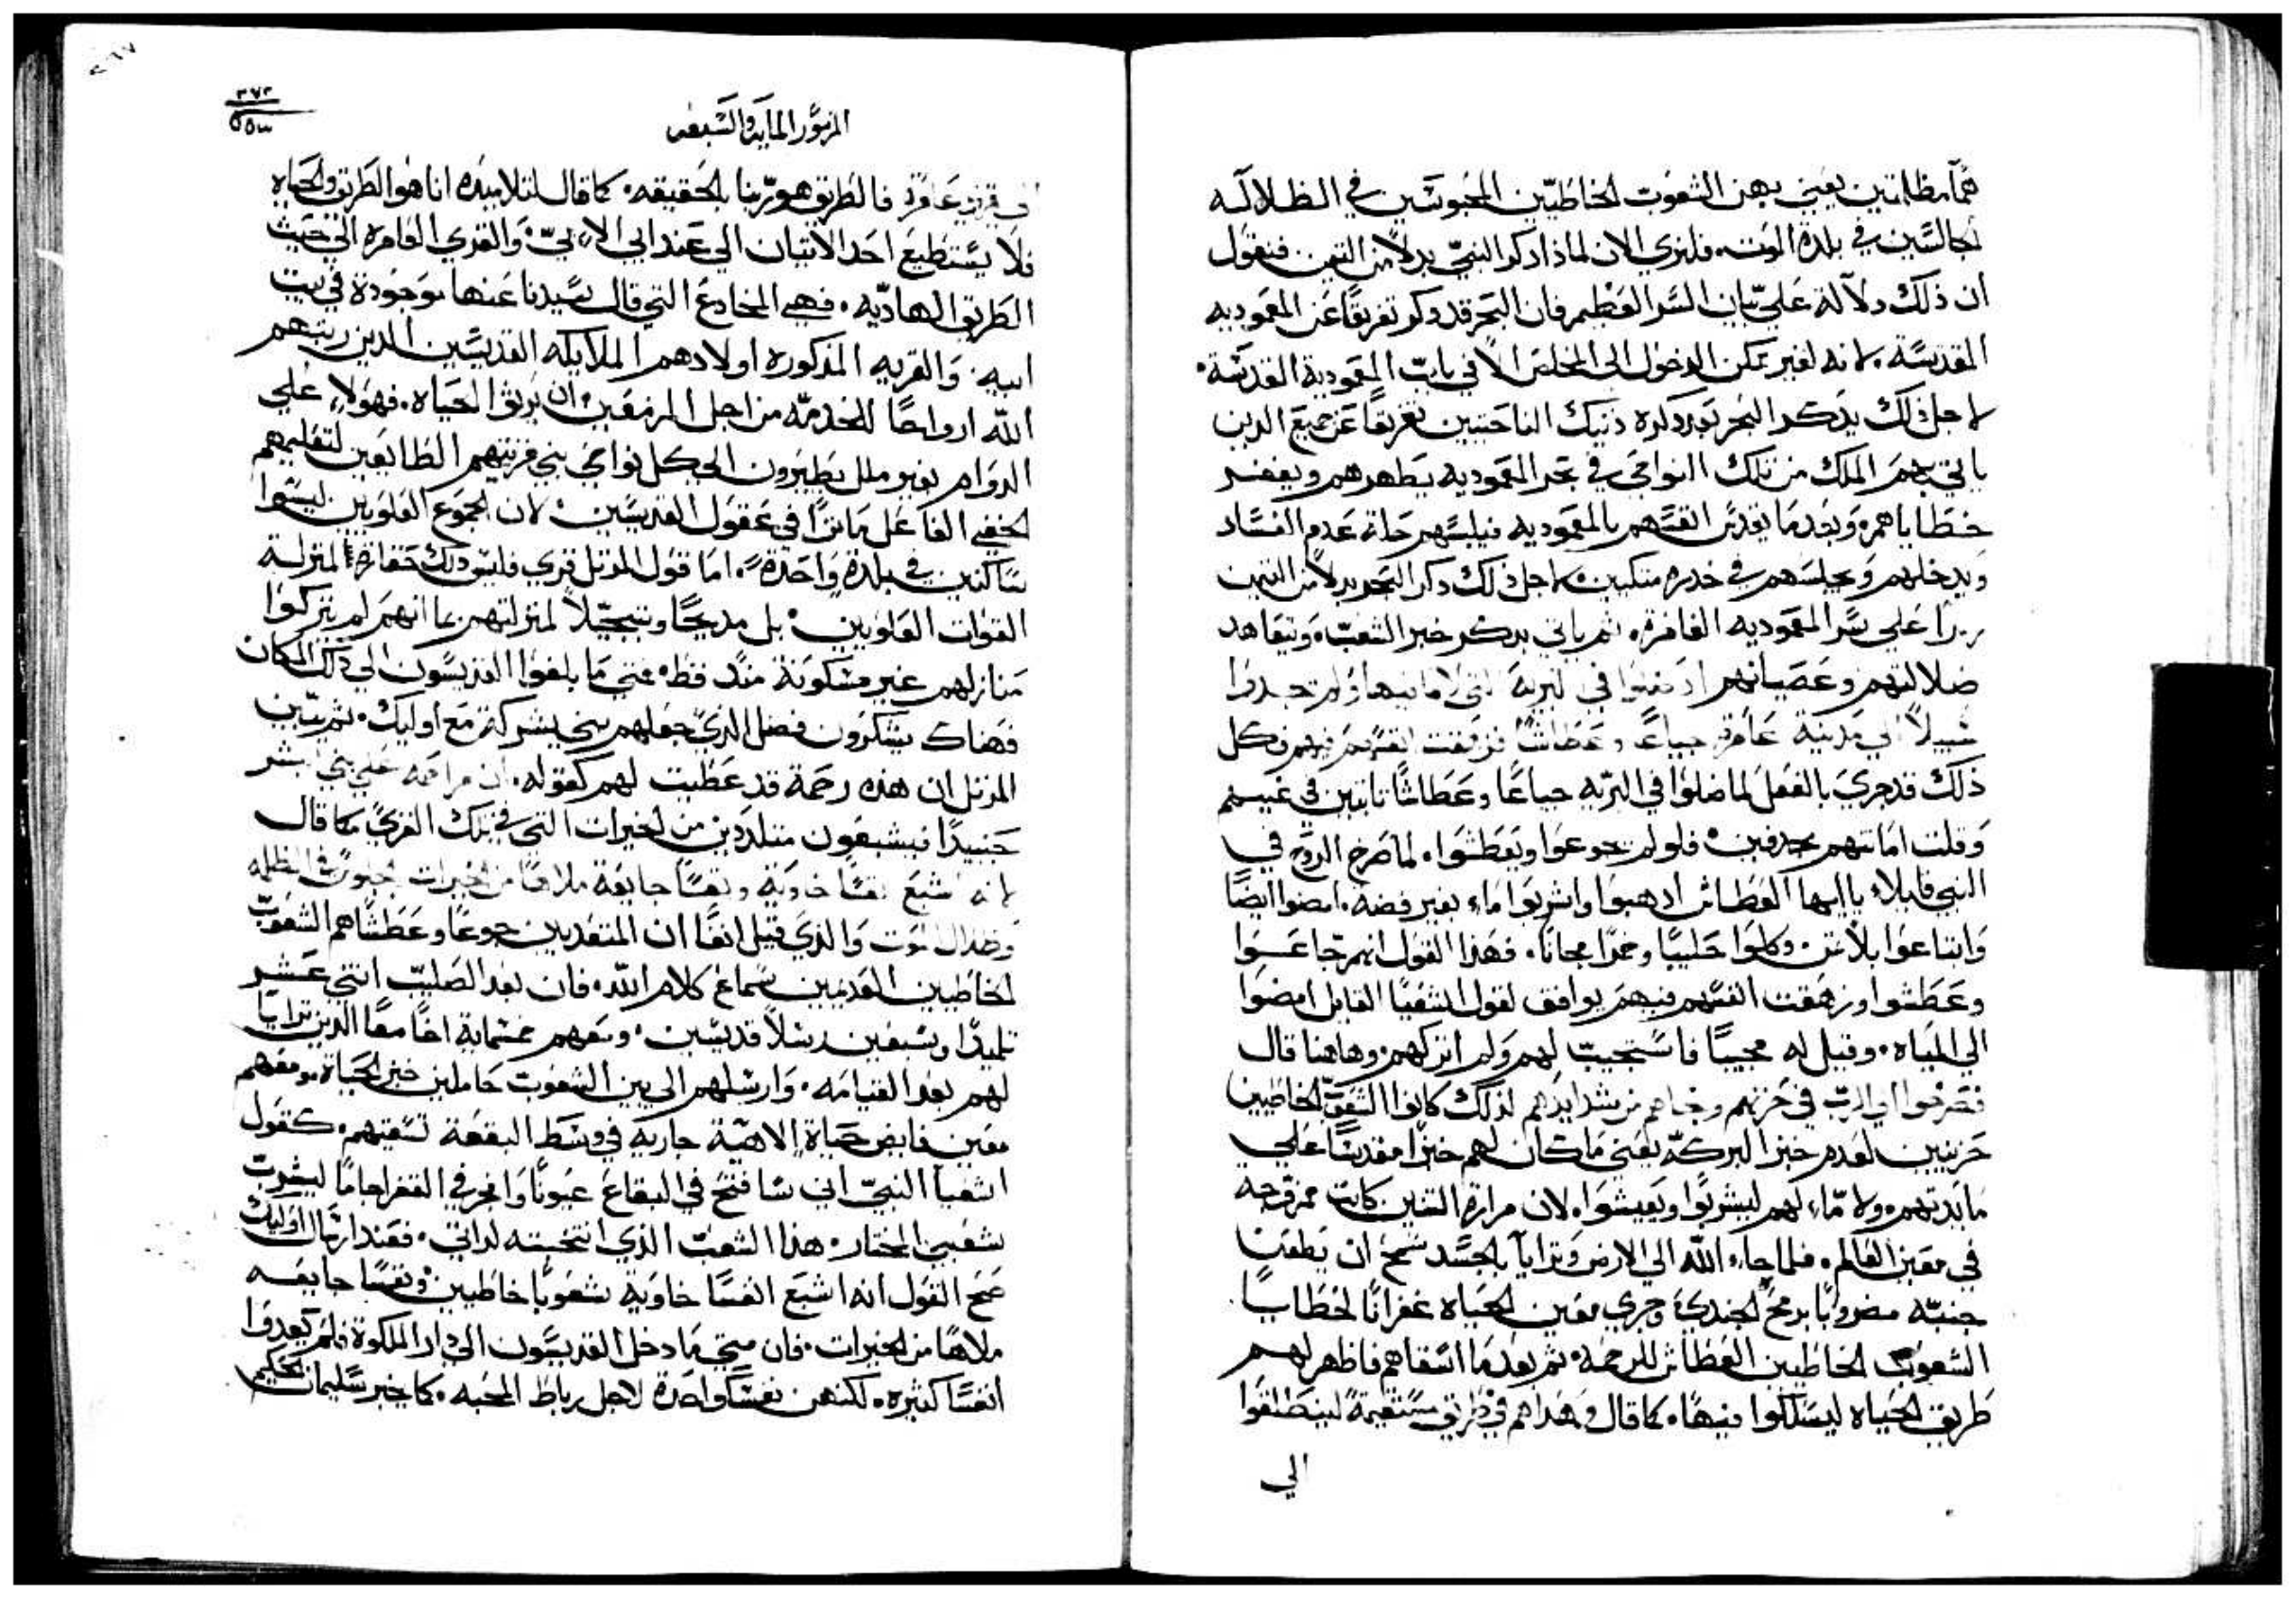 هما مظلمتين يعني بهن الشعوب الخاطيّين المحبوسَين في الظلالة
الجالسَين في بلدة الموت. فلنري الان لماذا ذكر النبيّ بدلاً من التيمن فنقول
ان ذلك دلالة عَلي بيان السَر العَظيم فان البَحر قد ذكر تفريقًا عَن المعموديه
المقدسَة. لانه لغير ممكن الدخول الى المخلص الاّ في باب المعمودية المقدسَة.
لاجل ذلك يذكر البحر بَعد ذكره ذنيك الناحَيتين تفريقًا عَن جميعَ الدين
ياتي بهم الملك من تلك النواحي في بَحر المعموديه يطهرهم ويغفر
خطاياهم. وَبَعد مَا تقدسَ انفسَهم بالمعموديه فيلبسَهم حلة عَدم الفسَاد
ويدخلهم وَيجلسَهم في خدره متكيين. لاجل ذلك ذكر البَحر بدلاً من التيمن
رمزًا عَلي سَر المعموديه الغافرة. ثم ياتي بذكر خبر الشعب وَيتعاهد
ضلالتهم وعَصَيانهم اذ ضلوا في البرية التي لا ما فيها ولم يجدوا
سَبيلاً الي مَدينة عَامرة جياعًا وعَطاشًا فزهقت انفسَهم فيهم وكل
ذلك قد جري بالفعَل لما ضلوا في البريّه جياعًا وعَطاشًا تايهين في غيهم
وَقلت امَانتهم مجدفين. فلو لم يجوعَوا ويَعَطشوا. لما صَرخ الروح في
النبي قايلاء يا ايها العَطاش اذهبوا واشربوا ماء بغير فضة. امضوا ايضًا
وَابتاعَوا بلا ثمن. وكلوا حَليبًا وخمرًا مجانًا. فهذا القول انهم جاعَوا
وعَطشوا وزهقت انفسَهم فيهم يوافق لقول اشعَيا القايل امضوا
الي المياه. وقيل له مجيبًا فاسَتجيب لهم وَلم اتركهم. وهاهنا قال
فصَرخوا الي الرب في حَزنهم ونجاهم من شدايدهم لذلك كانوا الشعَوب الخاطيين
حَزينين لعَدم خبز البركه يعَني مَا كان لهم خبزًا مقدسًا عَلي
مايدتهم. ولا مّاء لهم ليشربوا ويَعيشوا. لان مرارة التنين كانت ممزوجه
في معَين العَالم. فلما جاء الله الي الارض وَترايا بالجسَد سَمح ان يطعَن
جنبه مضروبًا برمح الجندي وَجري معَين الحَياه غفرانًا لخطايا
الشعَوب الخاطيين العَطاش للرحمة. ثم بَعد مَا اسَقاهم فاظهر لهم
طريق الحَياه ليسَلكوا فيها. كما قال وهَداهم في طريق مسَتقيمة لينطلقوا
الي
المزمور المايه والسَبعه
٣٧٢
٥٥٣
في قرية عَامرة فالطريق هو ربنا بالحَقيقه. كما قال لتلاميذه انا هو الطريق والحَياه
فلا يسَتطيع احَد الاتيان الي عَند ابي الا بيّ. وَالقري العَامره الي حَيث
الطريق الهاديّه. فهي المخادعَ التي قال سَيدنا عَنها موَجودة في بيت
ابيه. وَالقريه المذكوره اولادهم الملايكه القديسَين الذين رتبهم
الله ارواحًا للخدمّه من اجل المزمعَين ان يرثوا الحَياه. فهَولاء عَلي
الدوَام بغير ملل يطيرون الي كل نواحَي بني قريتهم الطايعَين لتعَليمهم
الخفي الفاعَل مَاثرًا في عَقول القديسَين. لان الجموَع العَلويين ليسَوا
سَاكنين في بلدة وَاحَدة. امَا قول المرتل قري فليسَ ذلك حَقارة لمنزلة
القوات العَلويين. بل مديحًا وتبجيلاً لمنزلتهم بما انهم لم يتركوا
مَنازلهم غير مسَكونة منذ قط. فمتي مَا بلغوا القديسَون الي ذلك المكان
فهناك يشكرون فضل الذي جعَلهم بني شركة مَع اوليك. ثم يبَين
المرتل ان هذه رحَمة قد عَظيت لهم كقوله. ان مراحَمه عَلي بني بشر
حَينيذًا فيشبعَون متلذذين من الخيرات التي في تلك القري كما قال
لانه اشبع نفسًا خاوية ونفسًا جايعَة ملاها من الخيرات الجلوس في الظلمه
وَظلال الموت وَالذي قيل انفًا ان المتقدمين جوعًا وعَطشًا هم الشعَوب
الخاطيين العَدَيمين سَماع كلام الله. فان بعَد الصَليب اثني عَشر
تلميذًا وسَبعَين رسَلاً قديسَين. ومَعهم خمسَماية اخًا معًا الذين ترايا
لهم بعَد القيامَه. وَارسَلهم الي بين الشعَوب حَاملين خبز الحَياة ومعَهم
معَين فايض حَياة الاهية جاريه في وسَط البقعَة تسَقيهم. كقول
اشعَيا النبي اني سَافتح في البقاع عَيونًا وَانهر في القفر اجامًا ليشرب
شعَبي المختار. هذا الشعَب الذي انتخبته لذاتي. فعَند ارسَال اوليك
صَح القول انه اشبَع انفسًا خاوية شعَوبًا خاطيين. ونفسًا جايعَه
ملاها من الخيرات. فان متي مَا دخل القديسَون الي دار الملكوة فلم يَعَدوا
انفسًا كثيره. لكنهن نفسًا واحَدة لاجل رباط المحَبه. كما خبر سَليمان الحَكيم